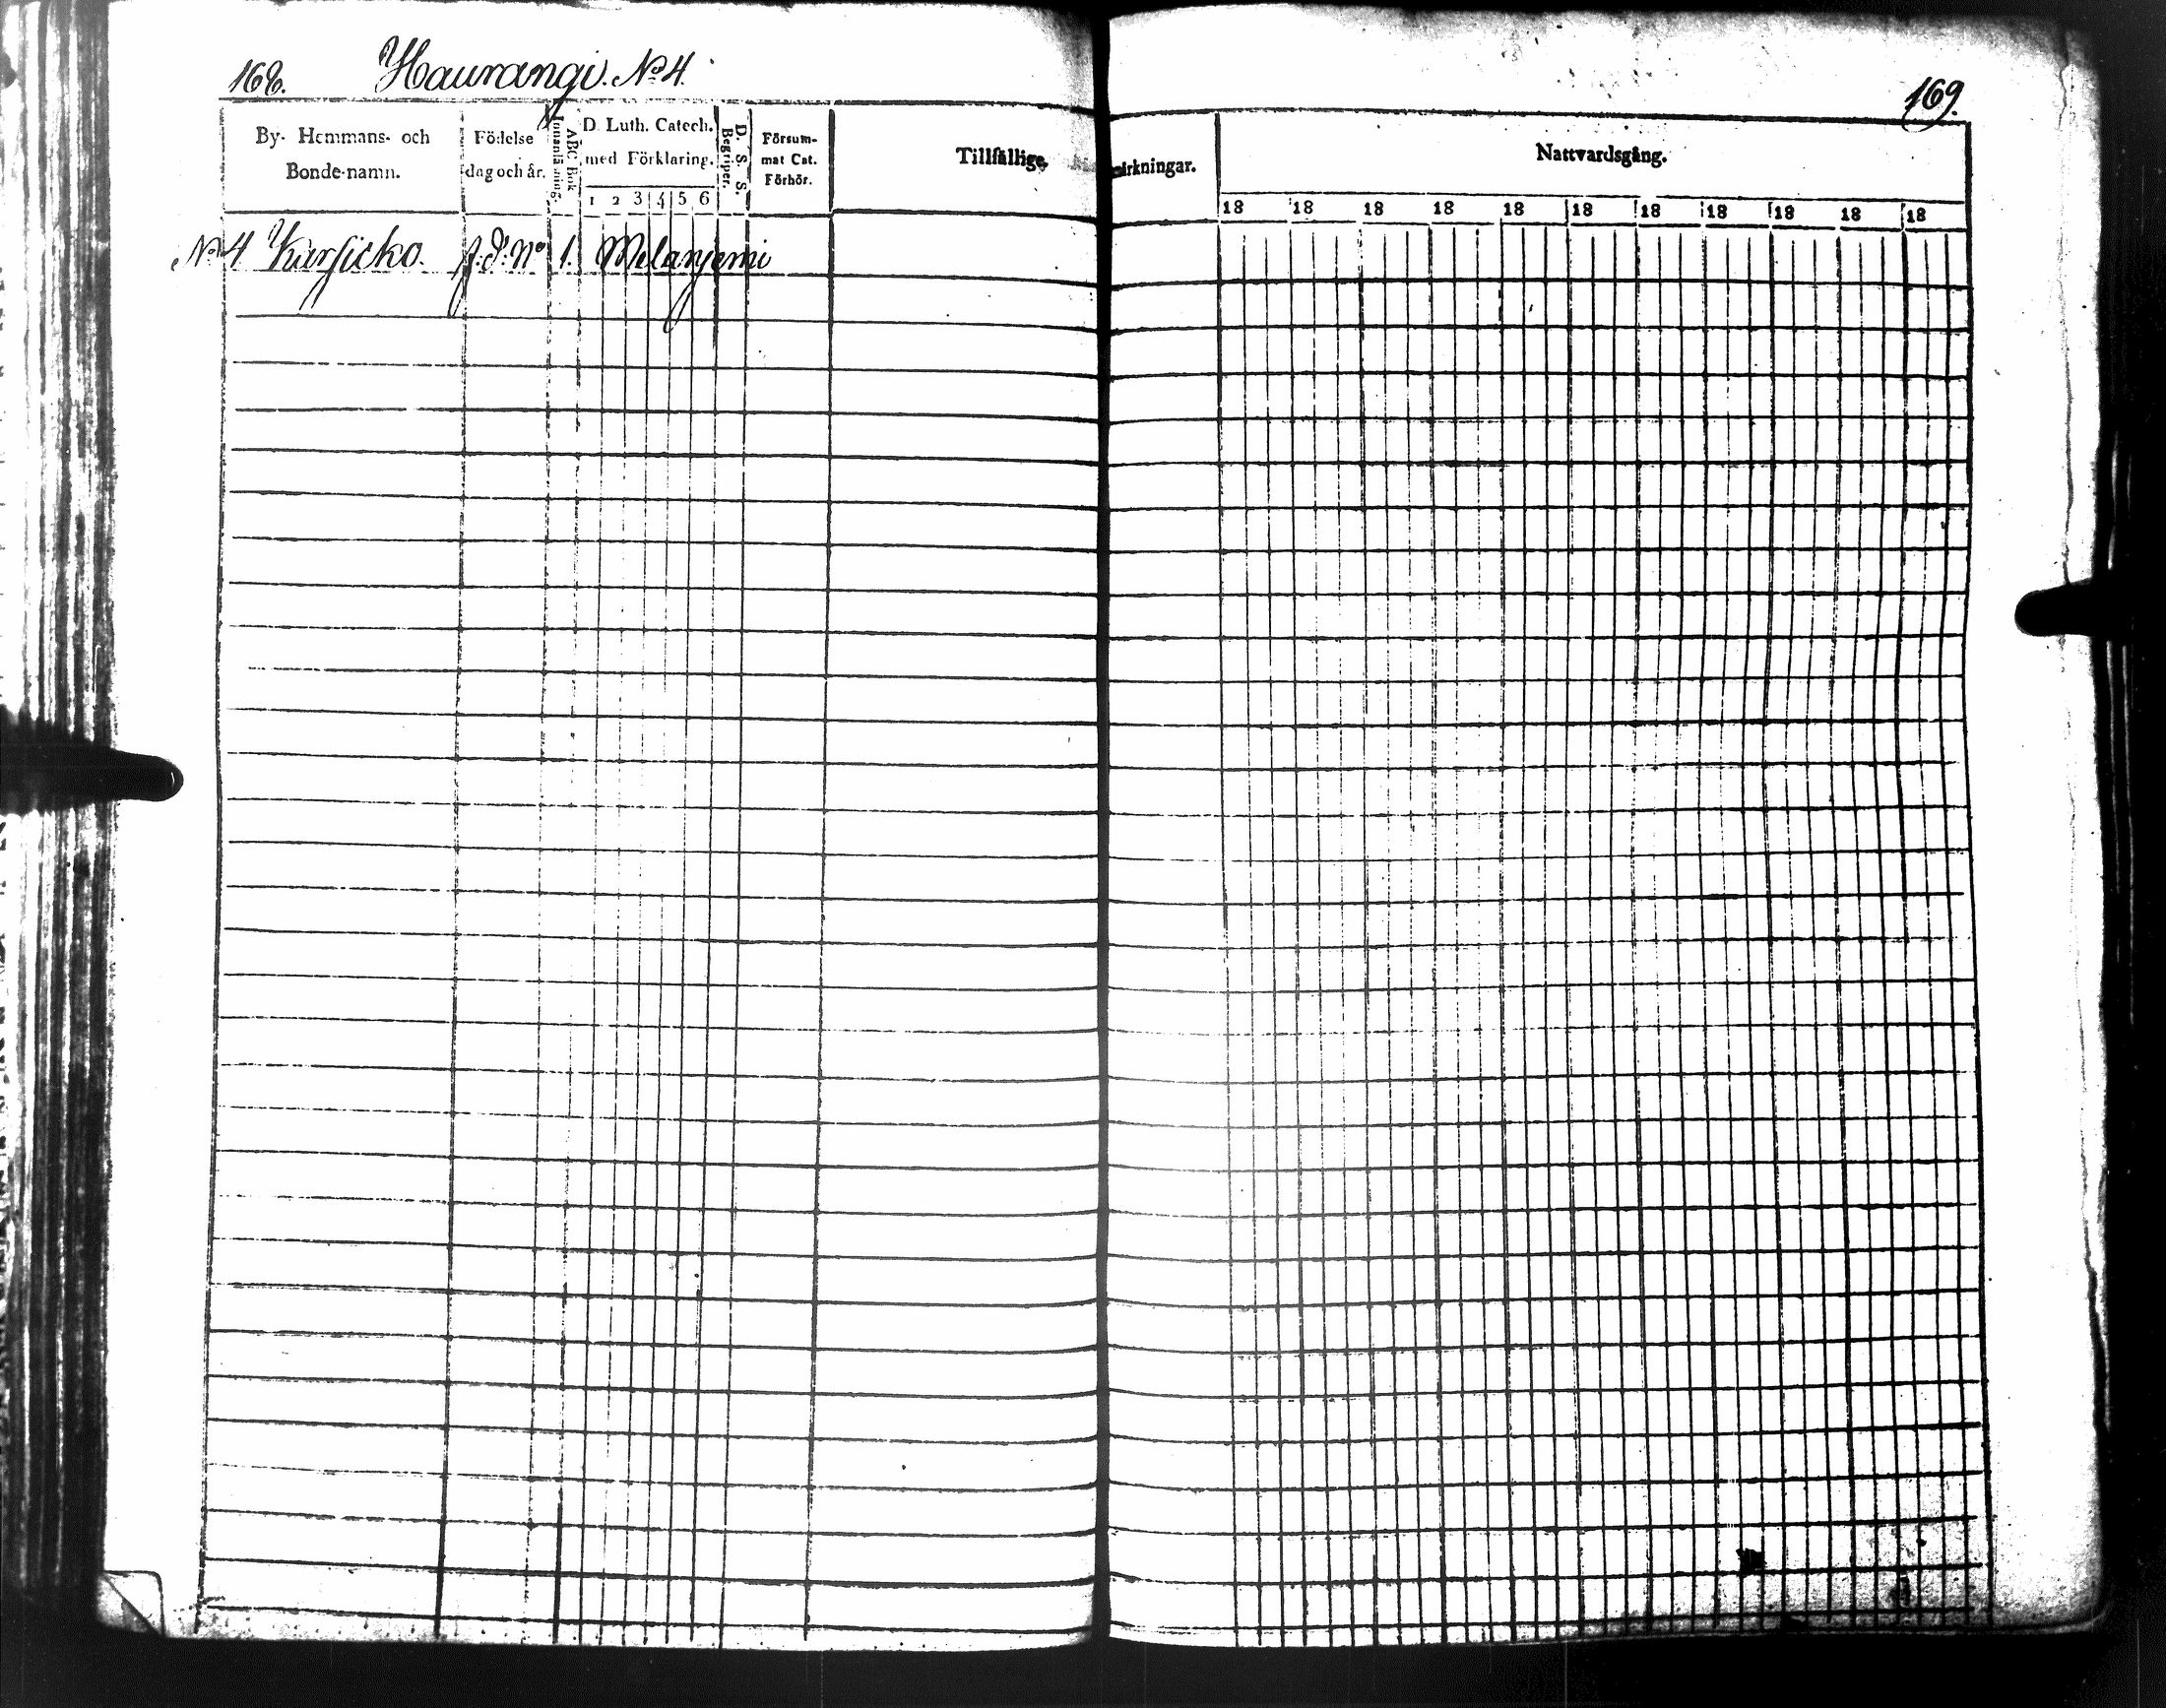 168. Haurangi. No 4.
169.
By- Hemmans- och
Bonde-namn.
Födelse
dag och år.
Innanläsning.
ABC Bok
D. Luth. Catech.
med Förklaring.
1 2 3 4 5 6
D. S. S.
Begriper.
Försum-
mat Cat.
Förhör.
Tillfällige
märkningar.
Nattvardsgång.
18 18 18 18 18 18 18 18 18 18 18
No 4 Karsicko. 1. Melanjemi